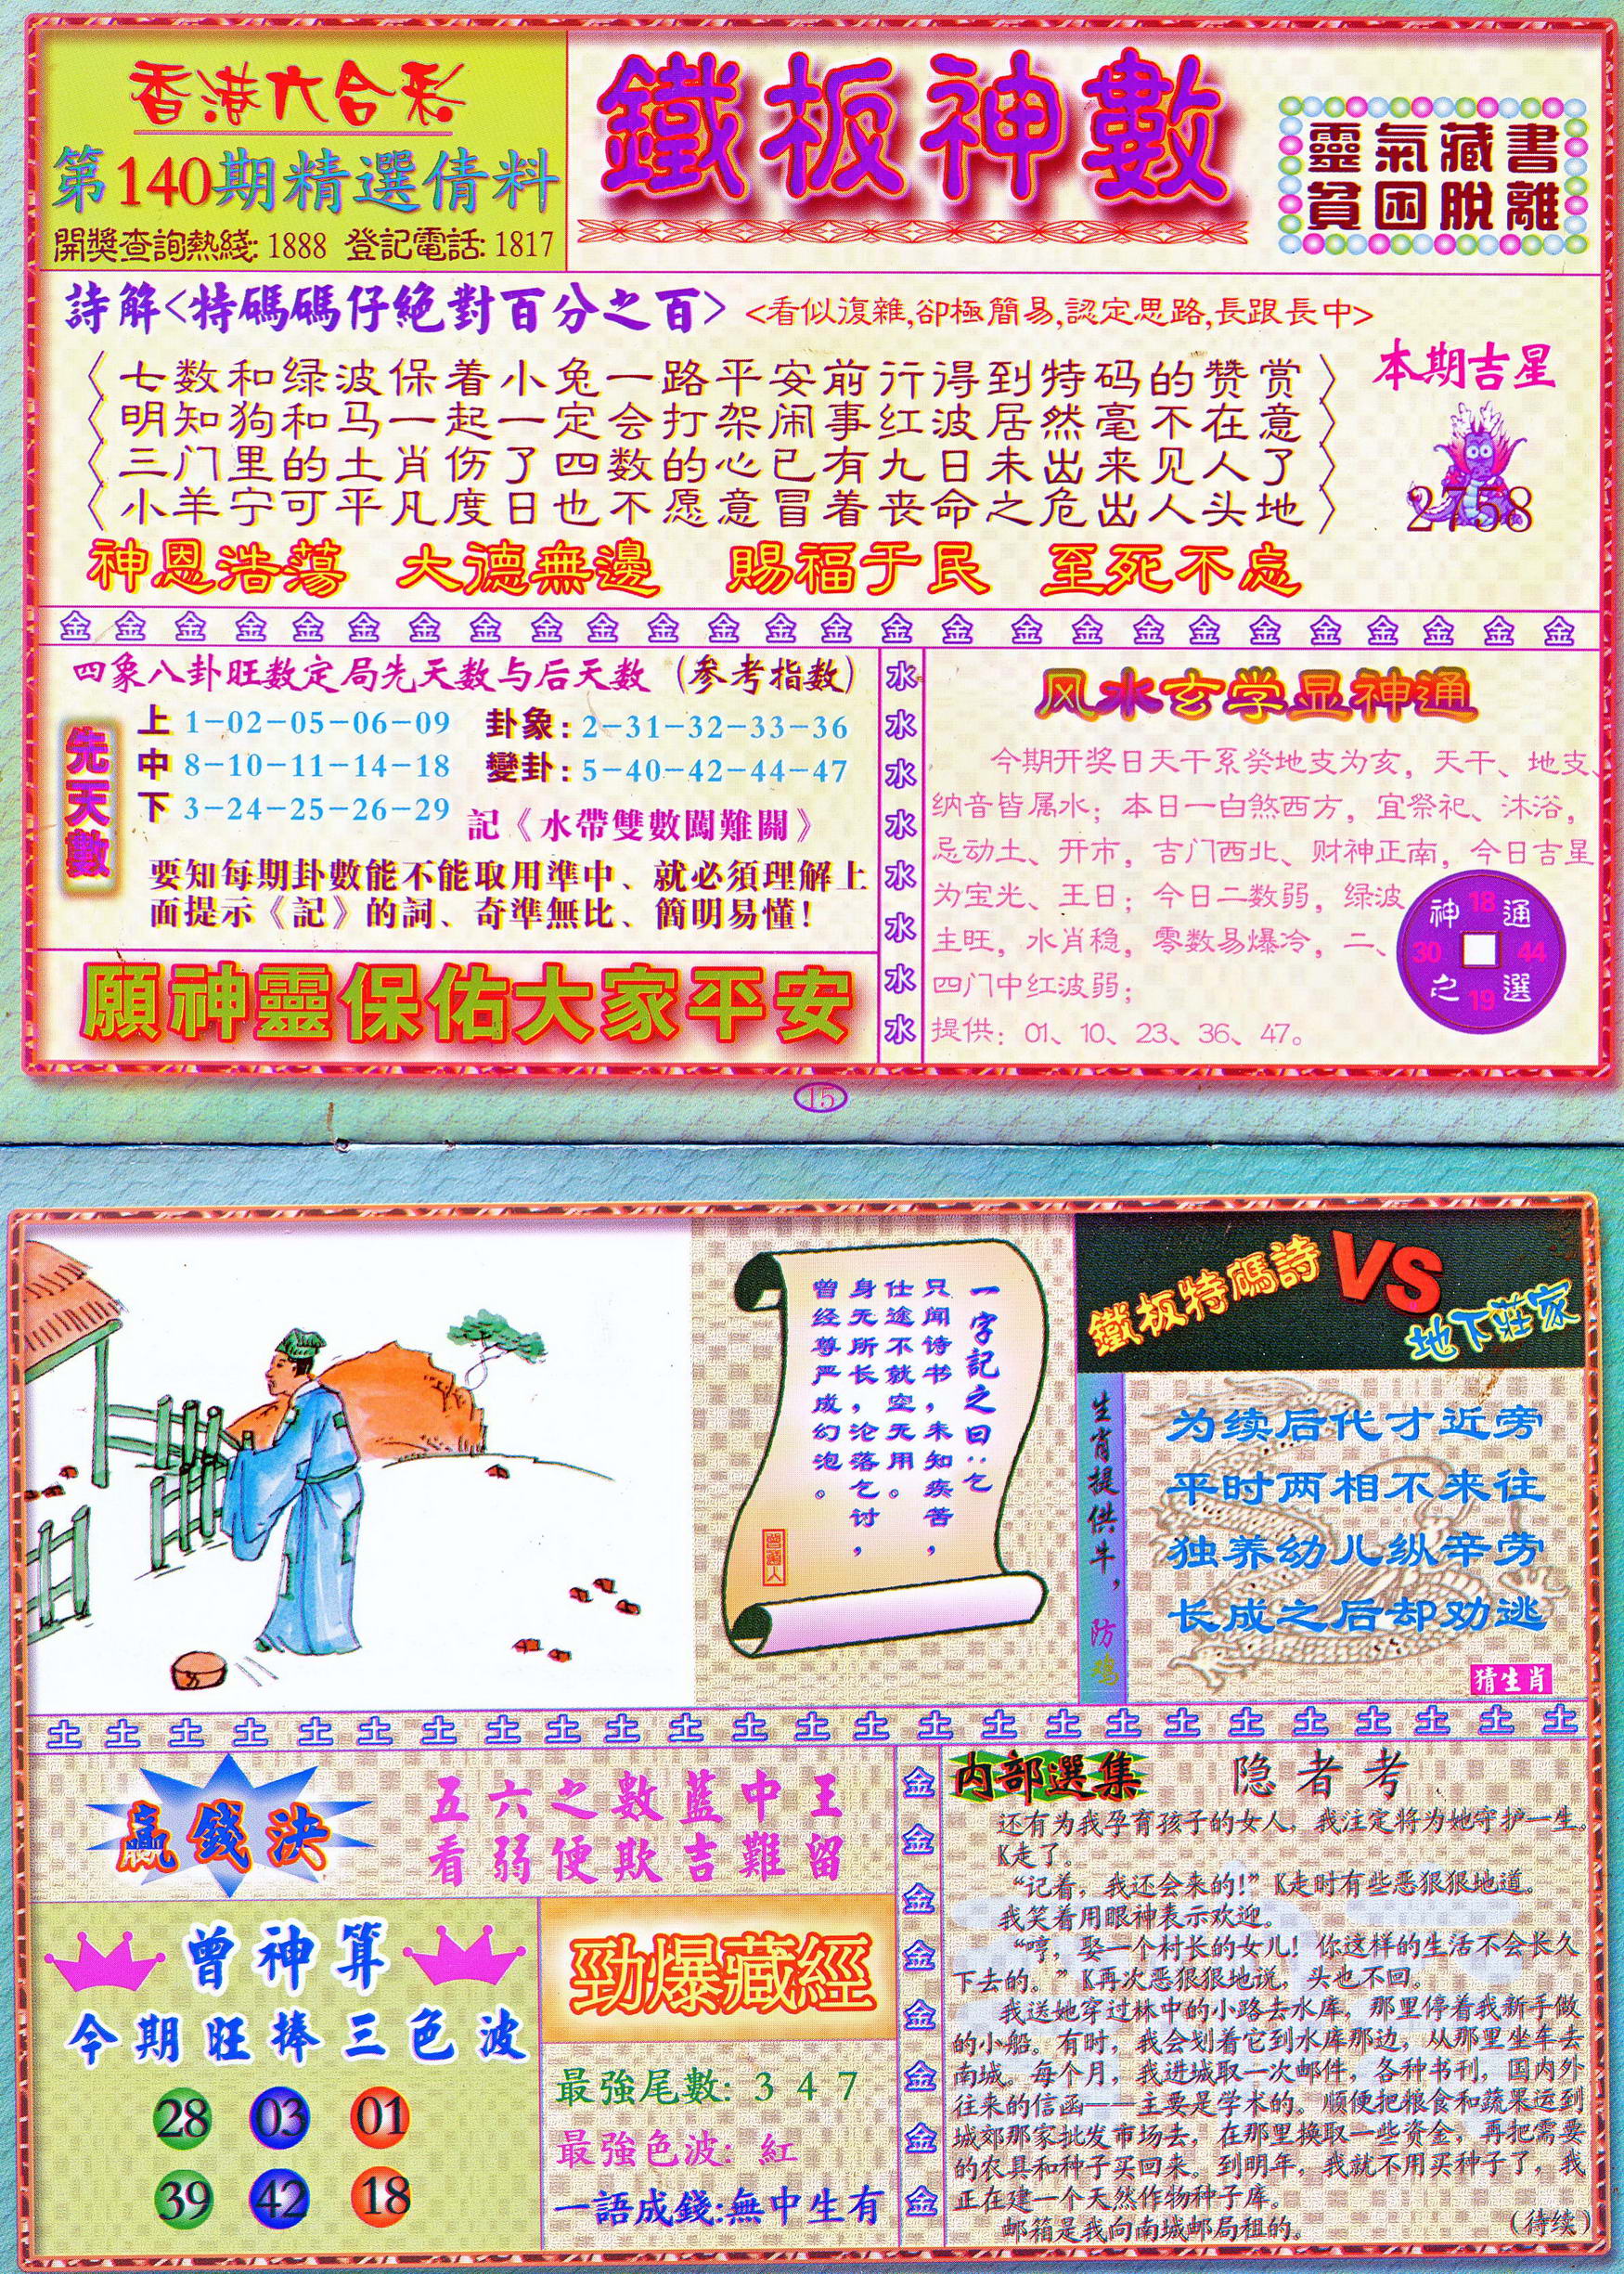 香港六合彩
第140期精選倩料
開獎查詢熱綫: 1888 登記電話: 1817
鐵板神數
靈氣藏書
貧困脫離
詩解<特碼碼仔絕對百分之百> <看似復雜,卻極簡易,認定思路,長跟長中>
〈七数和绿波保着小兔一路平安前行得到特码的赞赏〉
〈明知狗和马一起一定会打架闹事红波居然毫不在意〉
〈三门里的土肖伤了四数的心已有九日未出来见人了〉
〈小羊宁可平凡度日也不愿意冒着丧命之危出人头地〉
本期吉星
2758
神恩浩蕩 大德無邊 賜福于民 至死不忘
金 金 金 金 金 金 金 金 金 金 金 金 金 金 金 金 金 金 金 金 金 金 金 金 金 金
四象八卦旺数定局先天数与后天数(参考指数)
先天數
上 1-02-05-06-09 卦象: 2-31-32-33-36
中 8-10-11-14-18 變卦: 5-40-42-44-47
下 3-24-25-26-29
記《水帶雙數闖難關》
要知每期卦數能不能取用準中、就必須理解上
面提示《記》的詞、奇準無比、簡明易懂!
願神靈保佑大家平安
水
水
水
水
水
水
水
水
风水玄学显神通
今期开奖日天干系癸地支为亥，天干、地支、
纳音皆属水；本日一白煞西方，宜祭祀、沐浴，
忌动土、开市，吉门西北、财神正南，今日吉星
为宝光、王日；今日二数弱，绿波
主旺，水肖稳，零数易爆冷，二、
四门中红波弱；
提供：01、10、23、36、47。
神 18 通
30 44
之 19 選
15
一字記之曰:乞
只闻诗书，未知疾苦，
仕途不就空无用。
身无所长，沦落乞讨，
曾经尊严成幻泡。
鐵板特碼詩
VS
地下莊家
生肖提供牛，防鸡
为续后代才近旁
平时两相不来往
独养幼儿纵辛劳
长成之后却劝逃
猜生肖
土 土 土 土 土 土 土 土 土 土 土 土 土 土 土 土 土 土 土 土 土 土 土 土 土
贏錢決
五六之數藍中王
看弱便欺吉難留
曾神算
今期旺捧三色波
28 03 01
39 42 18
勁爆藏經
最強尾數: 3 4 7
最強色波: 紅
一語成錢:無中生有
金
金
金
金
金
金
金
金
内部選集 隐者考
还有为我孕育孩子的女人，我注定将为她守护一生。
K走了。
“记着，我还会来的!”K走时有些恶狠狠地道。
我笑着用眼神表示欢迎。
“哼，娶一个村长的女儿！你这样的生活不会长久
下去的。”K再次恶狠狠地说，头也不回。
我送她穿过林中的小路去水库，那里停着我新手做
的小船。有时，我会划着它到水库那边，从那里坐车去
南城。每个月，我进城取一次邮件，各种书刊，国内外
往来的信函——主要是学术的。顺便把粮食和蔬果运到
城郊那家批发市场去，在那里换取一些资金，再把需要
的农具和种子买回来。到明年，我就不用买种子了，我
正在建一个天然作物种子库。
邮箱是我向南城邮局租的。
(待续)